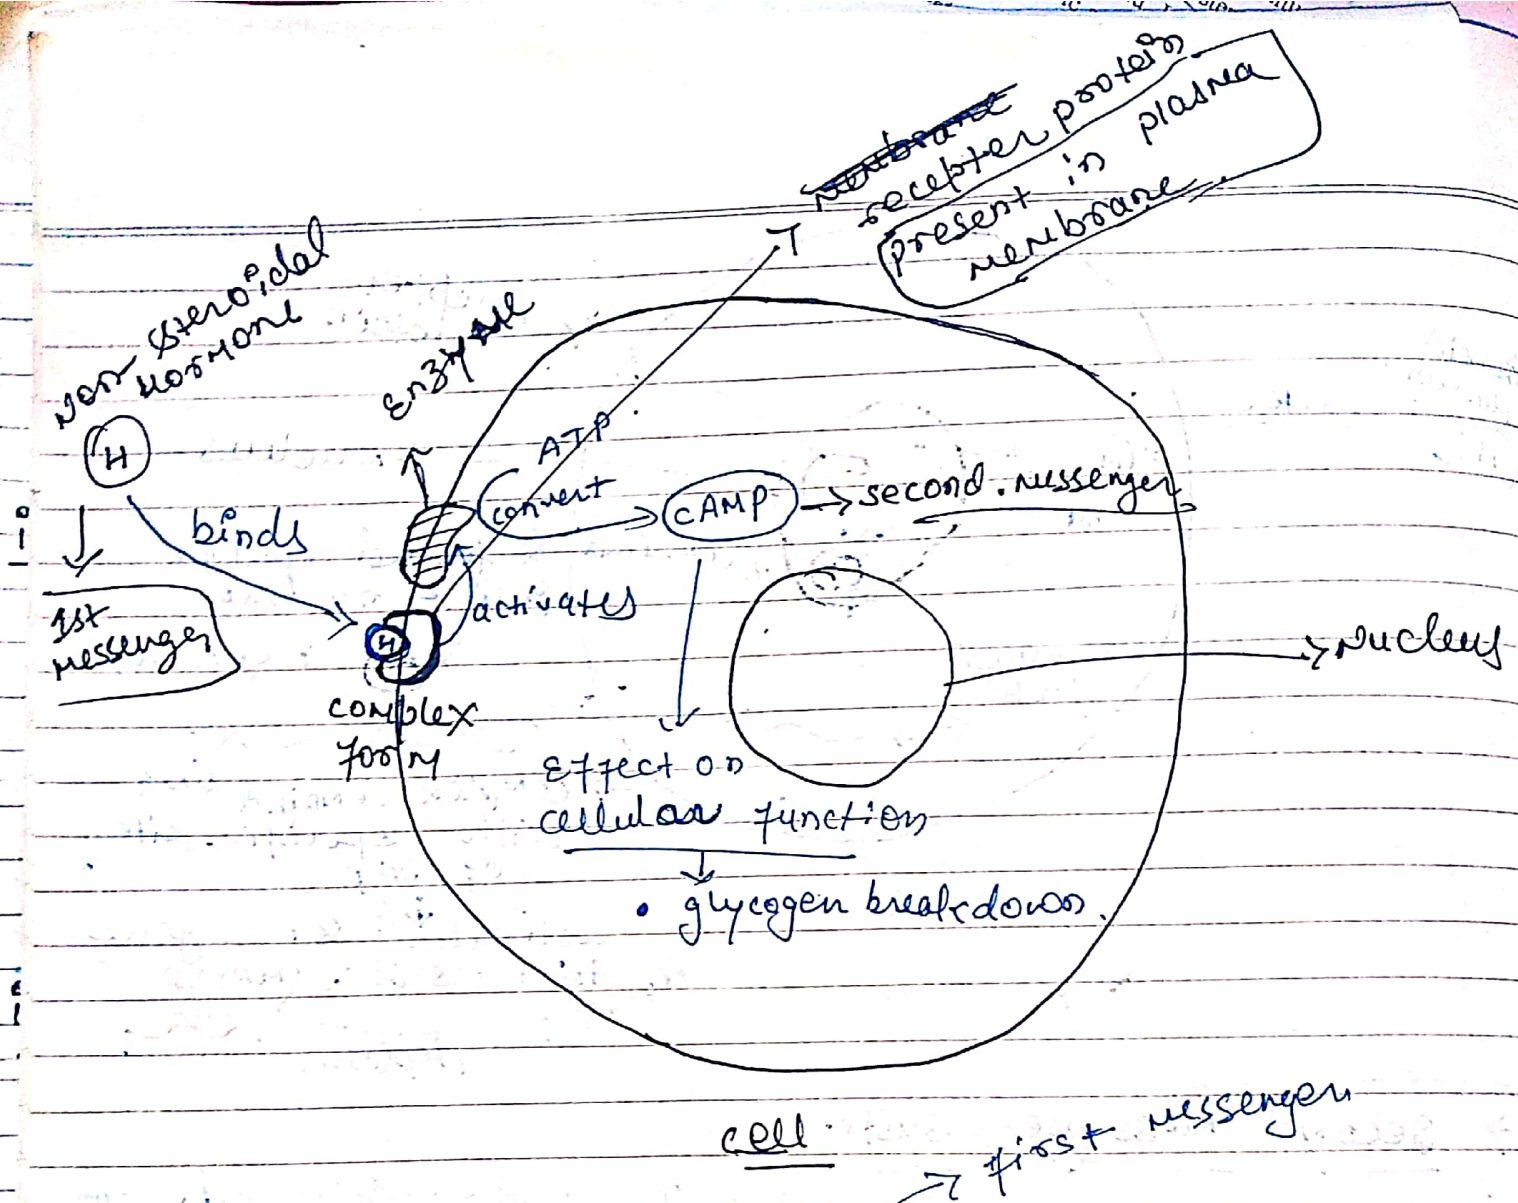 receptor protein
present in plasma
membrane
Non steroidal
hormone
H
Enzyme
ATP
convert
cAMP → second messenger
binds
1st
messenger
activates
H
complex
form
Nucleus
Effect on
cellular function
• glycogen breakdown.
cell
→ first messenger